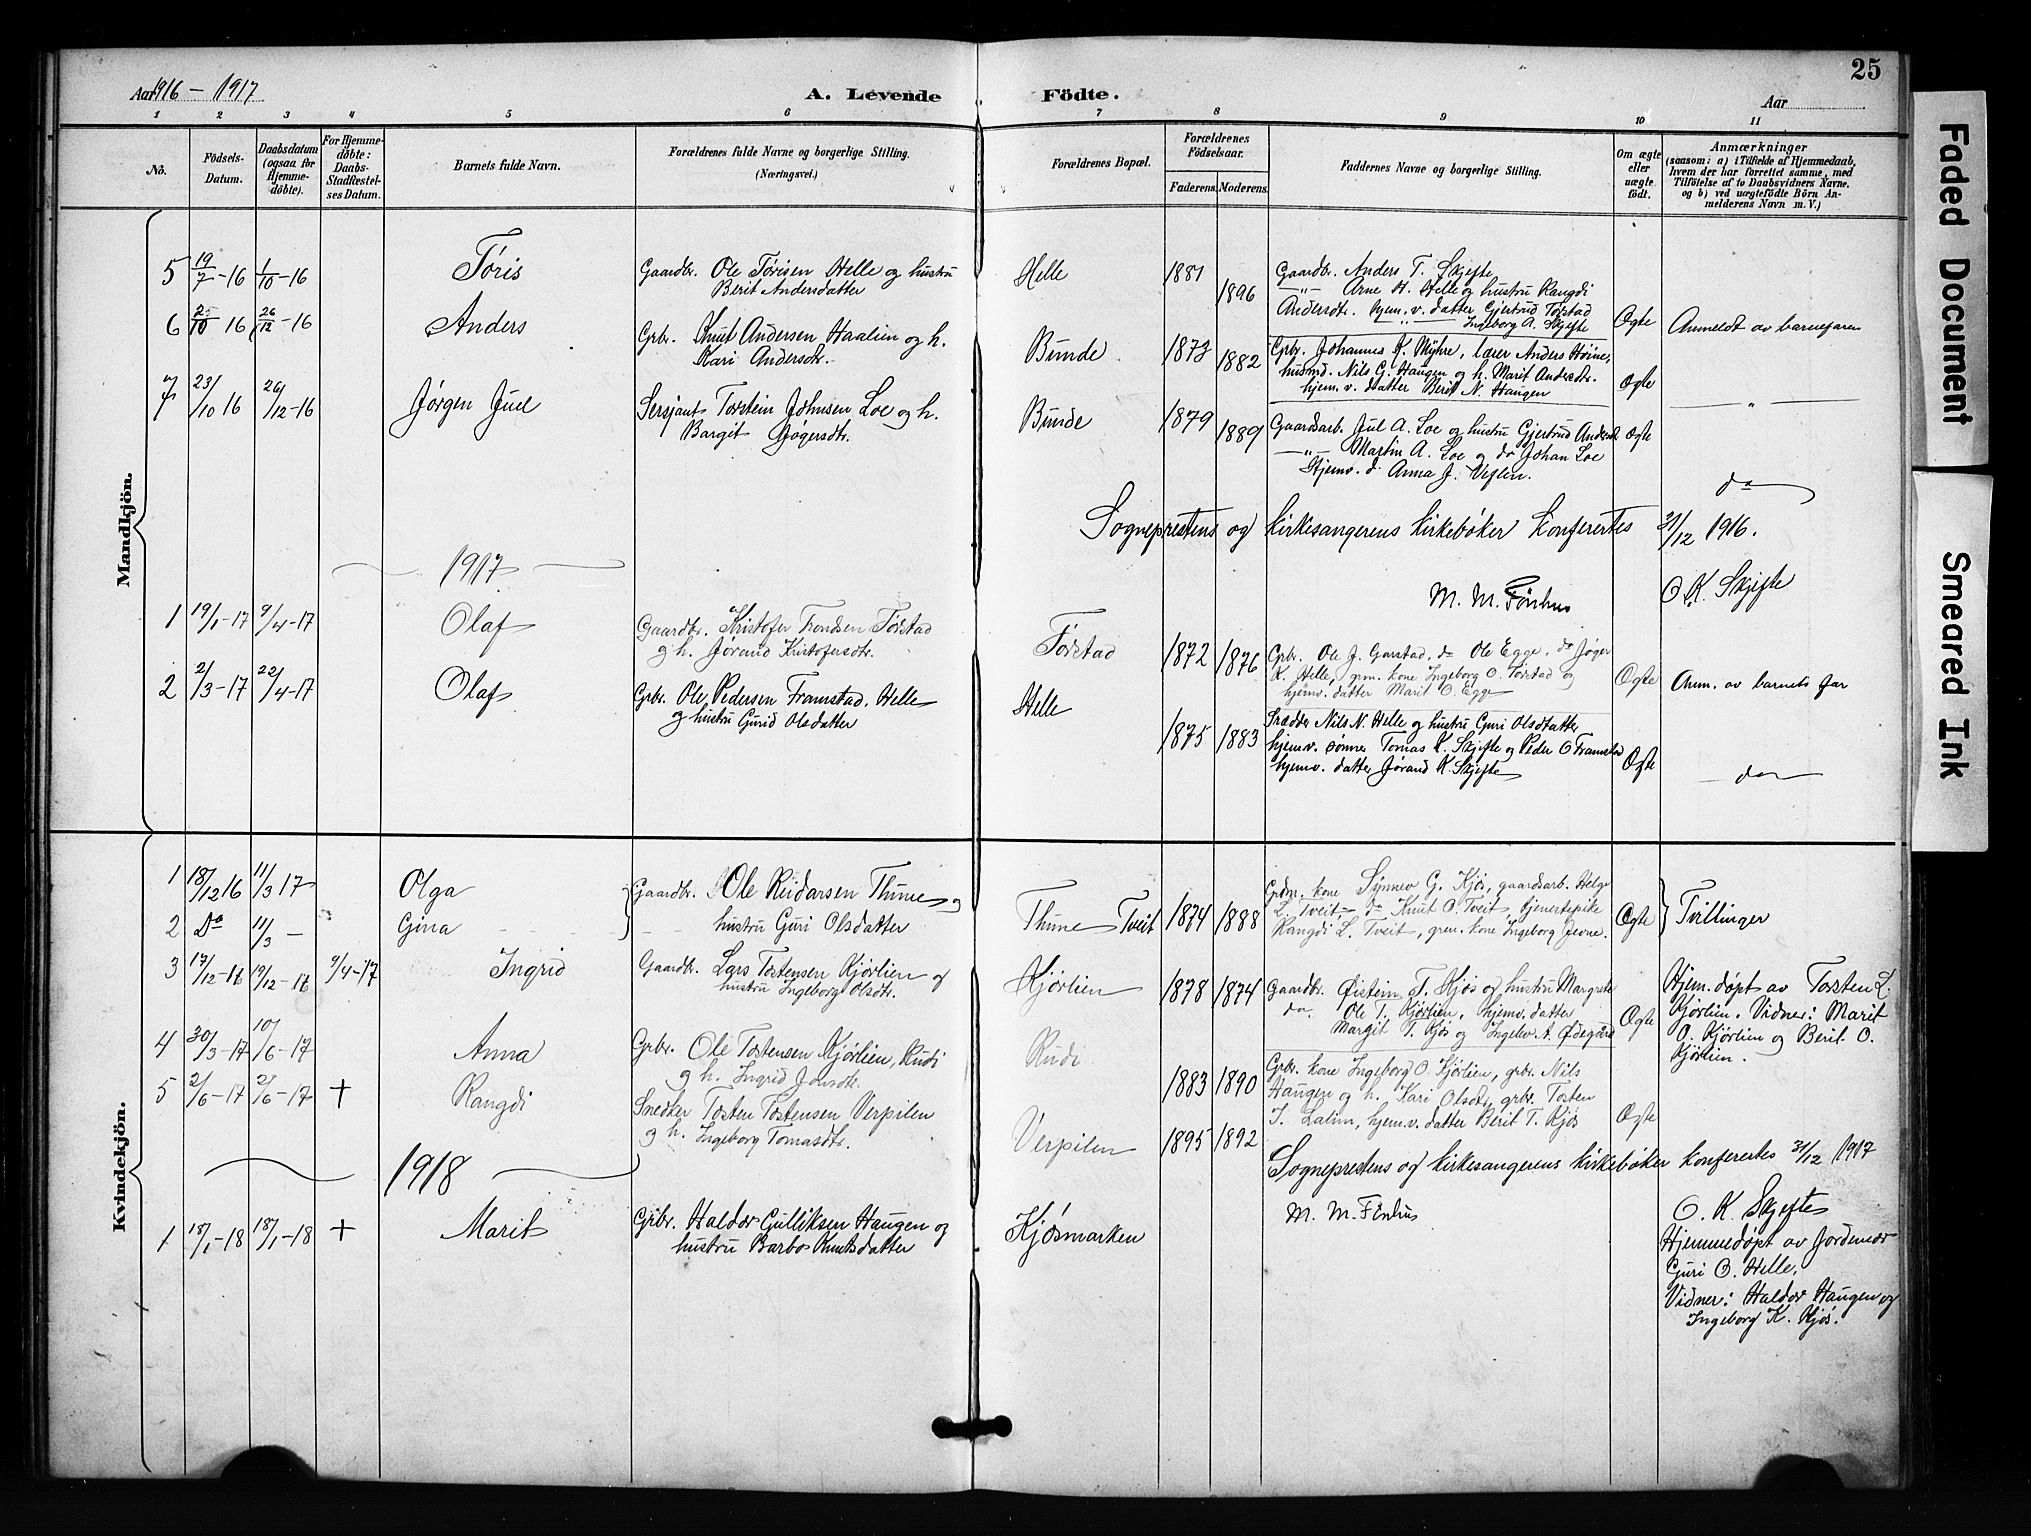 25
Aar 1916 – 1917
A. Levende Födte.
Aar
1 2 3 4 5 6 7 8 9 10 11
No.
Födsels-Datum.
Daabsdatum (ogsaa for Hjemme-døbte).
For Hjemme-døbte: Daabs-Stadfæstel-ses Datum.
Barnets fulde Navn.
Forældrenes fulde Navne og borgerlige Stilling. (Næringsvei.)
Forældrenes Bopæl.
Forældrenes Födselsaar.
Faderens. Moderens.
Faddernes Navne og borgerlige Stilling.
Om ægte eller uægte födt.
Anmærkninger
(saasom: a) i Tilfælde af Hjemmedaab, hvem der har forrettet samme, med Tilföielse af to Daabsvidners Navne, og b) ved uægtefödte Börn An-melderens Navn m. V.)
Mandkjön.
5 19/7-16 1/10-16 Tøris Gaardbr. Ole Tørisen Helle og hustru
Berit Andersdatter
Helle 1881 1896
Gaardbr. Anders T. Skjefte
—"— Arne H. Helle og hustru Rangdi
Andersdtr. hjem. v. datter Gjertrud Tørstad
—"— Ingeborg A. Skjefte
Ægte Anmeldt av barnefaren
6 25/10 16 26/12-16 Anders Grbr. Knut Andersen Haalien og h.
Kari Andersdtr.
Bunde 1873 1882
Grbr. Johannes K. Myhre, lærer Anders Høine,
husmd. Nils G. Haugen og h. Marit Andersdtr.
hjem. v. datter Berit N. Haugen
Ægte — " —
7 23/10 16 26/12-16 Jørgen Juel Sersjant Torstein Johnsen Loe og h.
Bargit Jøgersdtr.
Bunde 1879 1889
Gaardsarb. Jul A. Loe og hustru Gjertrud Andersdt
—"— Martin A. Loe og do Johan Loe
Hjemv. d. Anna J. Veflen.
Ægte do
Sogneprestens og kirkesangerens kirkebøker konferertes 31/12 1916.
M. M. Fønhus O. K. Skjefte
1917
1 19/1-17 9/4-17 Olaf Gaardbr. Kristofer Trondsen Tørstad
og h. Jørand Kristofersdtr.
Tørstad 1872 1876
Grbr. Ole J. Garstad, do Ole Egge, do Jøger
K. Helle, grm. kone Ingeborg O. Tørstad og
hjemv. datter Marit O. Egge
Ægte Anm. av barnets far
2 2/3-17 22/4-17 Olaf Grbr. Ole Pedersen Framstad, Helle
og hustru Gunid Olsdatter
Helle 1875 1883
Skrædder Nils N. Helle og hustru Guri Olsdatter
hjemv. sønner Tomas K. Skjefte og Peder O Framstad
hjemv. datter Jørand K. Skjefte
Ægte do
Kvindekjön.
1 18/12 16 11/3 17 Olga Gaardbr. Ole Reidarsen Thune og
2 Do 11/3 – Gina hustru Guri Olsdatter
Thune Tveit 1874 1888
Grdm. kone Synnev G. Kjøs, gaardsarb. Helge
L. Tveit, do Knut O. Tveit, tjenestepike
Rangdi L. Tveit, grm. kone Ingeborg Jevne.
Ægte Tvillinger
3 17/12-16 19/12-16 9/4-17 Ingrid Gaardbr. Lars Tostensen Kjørlien og
hustru Ingeborg Olsdtr.
Kjørlien 1878 1874
Gaardbr. Øistein T. Kjøs og hustru Margrete
do. Ole T. Kjørlien, hjemv. datter
Margit T. Kjøs og Ingelev A. Ødegård
Ægte Hjem. døpt av Torsten L.
Kjørlien. Vidner: Marit
O. Kjørlien og Berit O.
Kjørlien.
4 30/3-17 10/6-17 Anna Grbr. Ole Tostensen Kjørlien, Rudi
og h. Ingrid Jonsdtr.
Rudi 1883 1890
Grbr. kone Ingeborg O. Kjørlien, grbr. Nils
Haugen og h. Kari Olsdtr, grbr. Tosten
J. Lalim, hjem. v. datter Berit T. Kjøs
Ægte
5 2/6-17 2/6-17 + Rangdi Snedker Tosten Tostensen Verpilen
og h. Ingeborg Tomasdtr.
Verpilen 1895 1892
Sogneprestens og kirkesangerens kirkebøker konferertes 31/12 1917
M. M. Fønhus O. K. Skjefte
1918
1 18/1-18 18/1-18 + Marit Grbr. Haldor Gulliksen Haugen og
hustru Barbo Knutsdatter
Kjøsmarken
Hjemmedøpt av Jordmor
Guri O. Helle.
Vidner: Haldor Haugen og
Ingeborg K. Kjøs.
Faded Document
Smeared Ink